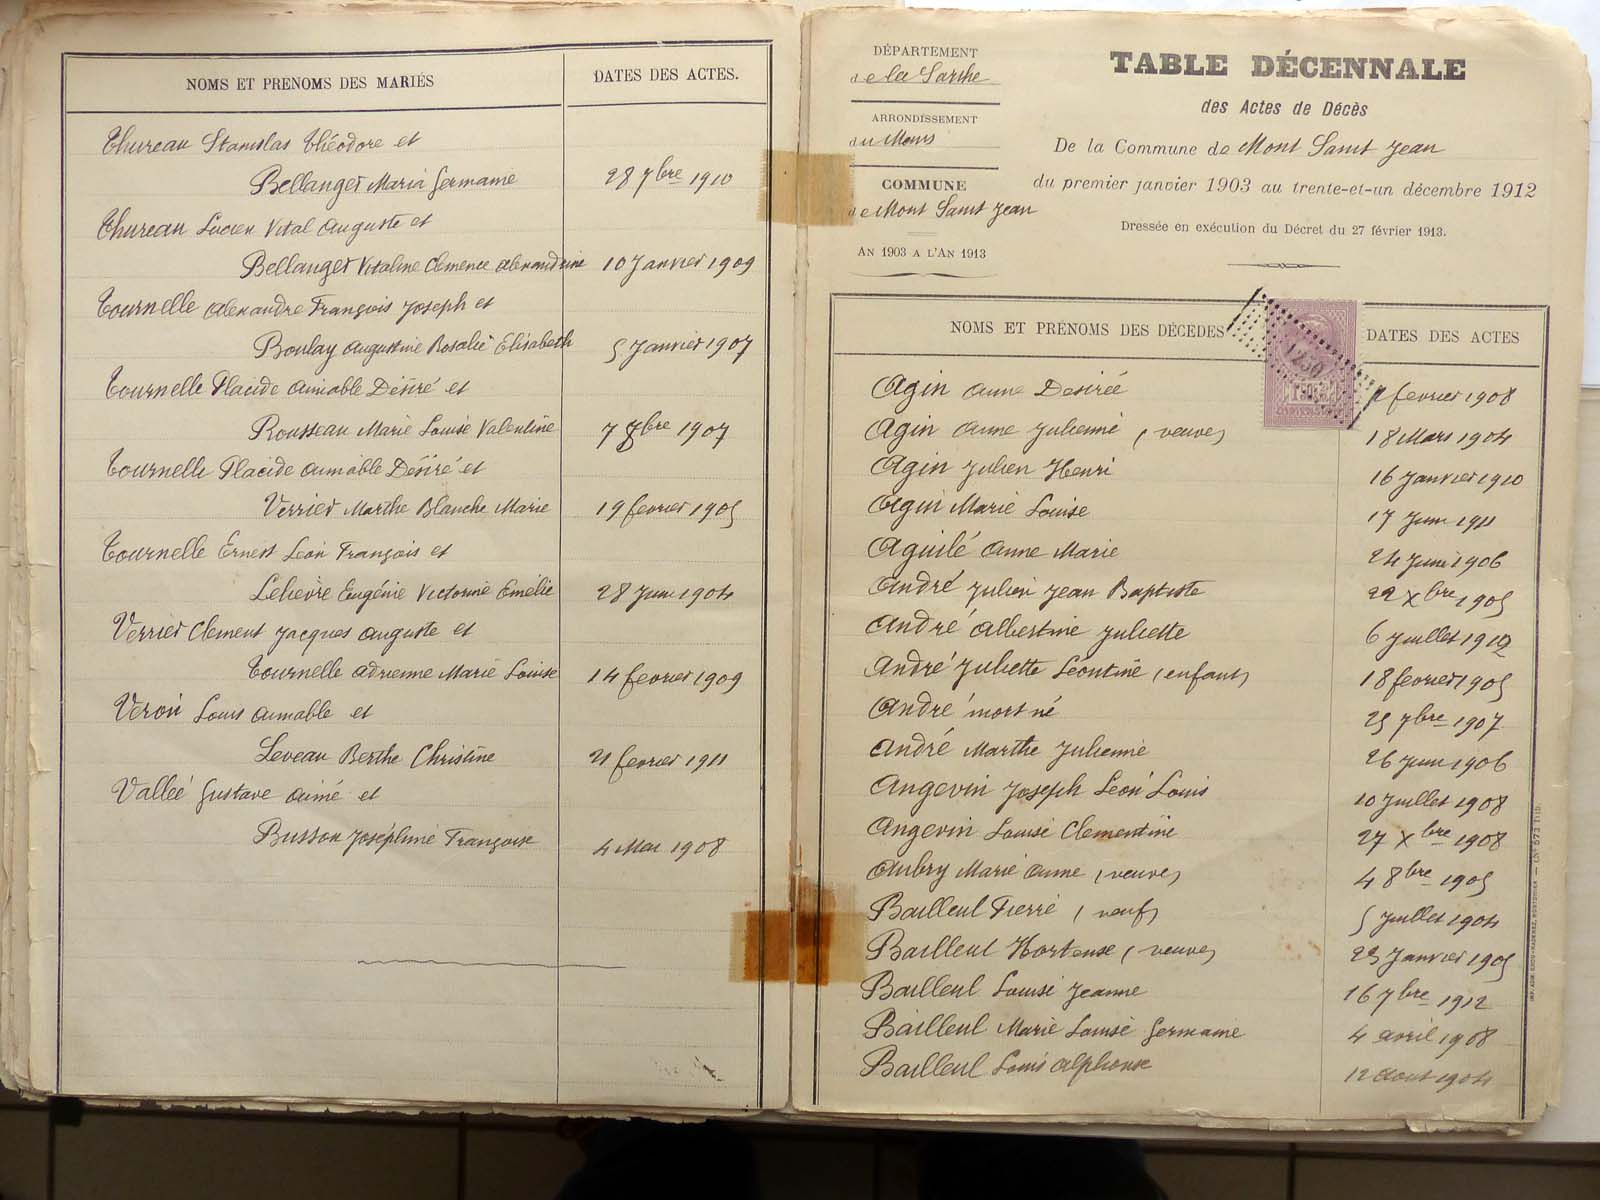 NOMS ET PRENOMS DES MARIÉS
DATES DES ACTES.
Thureau Stanislas Théodore et
Bellanger Maria Germaine 28 7bre 1910
Thureau Lucien Vital Auguste et
Bellanger Vitaline Clemence Alexandrine 10 Janvier 1909
Tournelle Alexandre François Joseph et
Boulay Augustine Rosalie Elisabeth 5 Janvier 1907
Tournelle Placide Aimable Désiré et
Rousseau Marie Louise Valentine 7 8bre 1907
Tournelle Placide Aimable Désiré et
Verrier Marthe Blanche Marie 19 fevrier 1905
Tournelle Ernest Leon François et
Lelievre Eugénie Victorine Emélie 28 Juin 1904
Verrier Clement Jacques Auguste et
Tournelle Adrienne Marie Louise 14 fevrier 1909
Veron Louis Aimable et
Leveau Berthe Christine 21 fevrier 1911
Vallée Gustave Aimé et
Busson Joséphine Françoise 4 Mai 1908
DÉPARTEMENT
de la Sarthe
ARRONDISSEMENT
du Mans
COMMUNE
de Mont Saint Jean
AN 1903 A L'AN 1913
TABLE DÉCENNALE
des Actes de Décès
De la Commune de Mont Saint Jean
du premier janvier 1903 au trente-et-un décembre 1912
Dressée en exécution du Décret du 27 février 1913.
NOMS ET PRÉNOMS DES DÉCEDES
DATES DES ACTES
1230
Agin Anne Desirée fevrier 1908
Agin Anne Julienne (veuve) 18 Mars 1904
Agin Julien Henri 16 Janvier 1910
Agin Marie Louise 17 Juin 1911
Aguilé Anne Marie 24 Juin 1906
André Julien Jean Baptiste 22 Xbre 1905
André Albertine Juliette 6 Juillet 1912
André Juliette Léontine (enfant) 18 fevrier 1905
André mort né 25 7bre 1907
André Marthe Julienne 26 Juin 1906
Angevin Joseph Léon Louis 10 Juillet 1908
Angevin Louise Clementine 27 Xbre 1908
Aubry Marie Anne (veuve) 4 8bre 1905
Bailleul Pierre (veuf) 5 Juillet 1904
Bailleul Hortense (veuve) 23 Janvier 1905
Bailleul Louise Jeanne 16 7bre 1912
Bailleul Marie Louise Germaine 4 avril 1908
Bailleul Louis Alphonse 12 Aout 1904